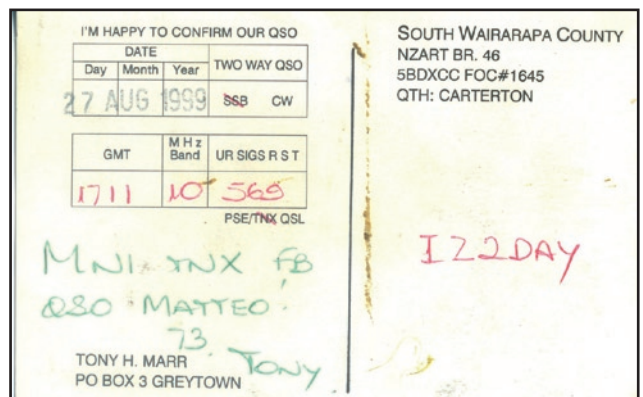 I'M HAPPY TO CONFIRM OUR QSO
DATE
Day Month Year TWO WAY QSO
27 AUG 1999 SSB CW
GMT MHz Band UR SIGS R S T
1711 10 569
PSE/TNX QSL
MNI TNX FB
QSO MATTEO.
73
TONY
TONY H. MARR
PO BOX 3 GREYTOWN
SOUTH WAIRARAPA COUNTY
NZART BR. 46
5BDXCC FOC#1645
QTH: CARTERTON
IZ2DAY